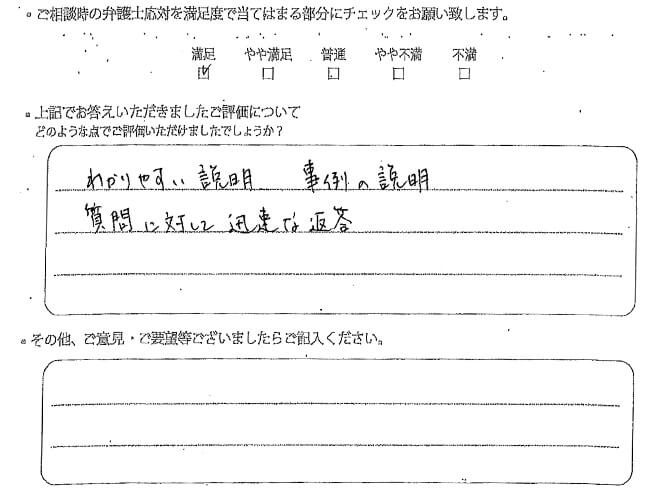 ご相談時の弁護士応対を満足度で当てはまる部分にチェックをお願い致します。
満足 やや満足 普通 やや不満 不満
☑ □ □ □ □
上記でお答えいただきましたご評価について
どのような点でご評価いただけましたでしょうか？
わかりやすい説明 事例の説明
質問に対して迅速な返答
その他、ご意見・ご要望等ございましたらご記入ください。